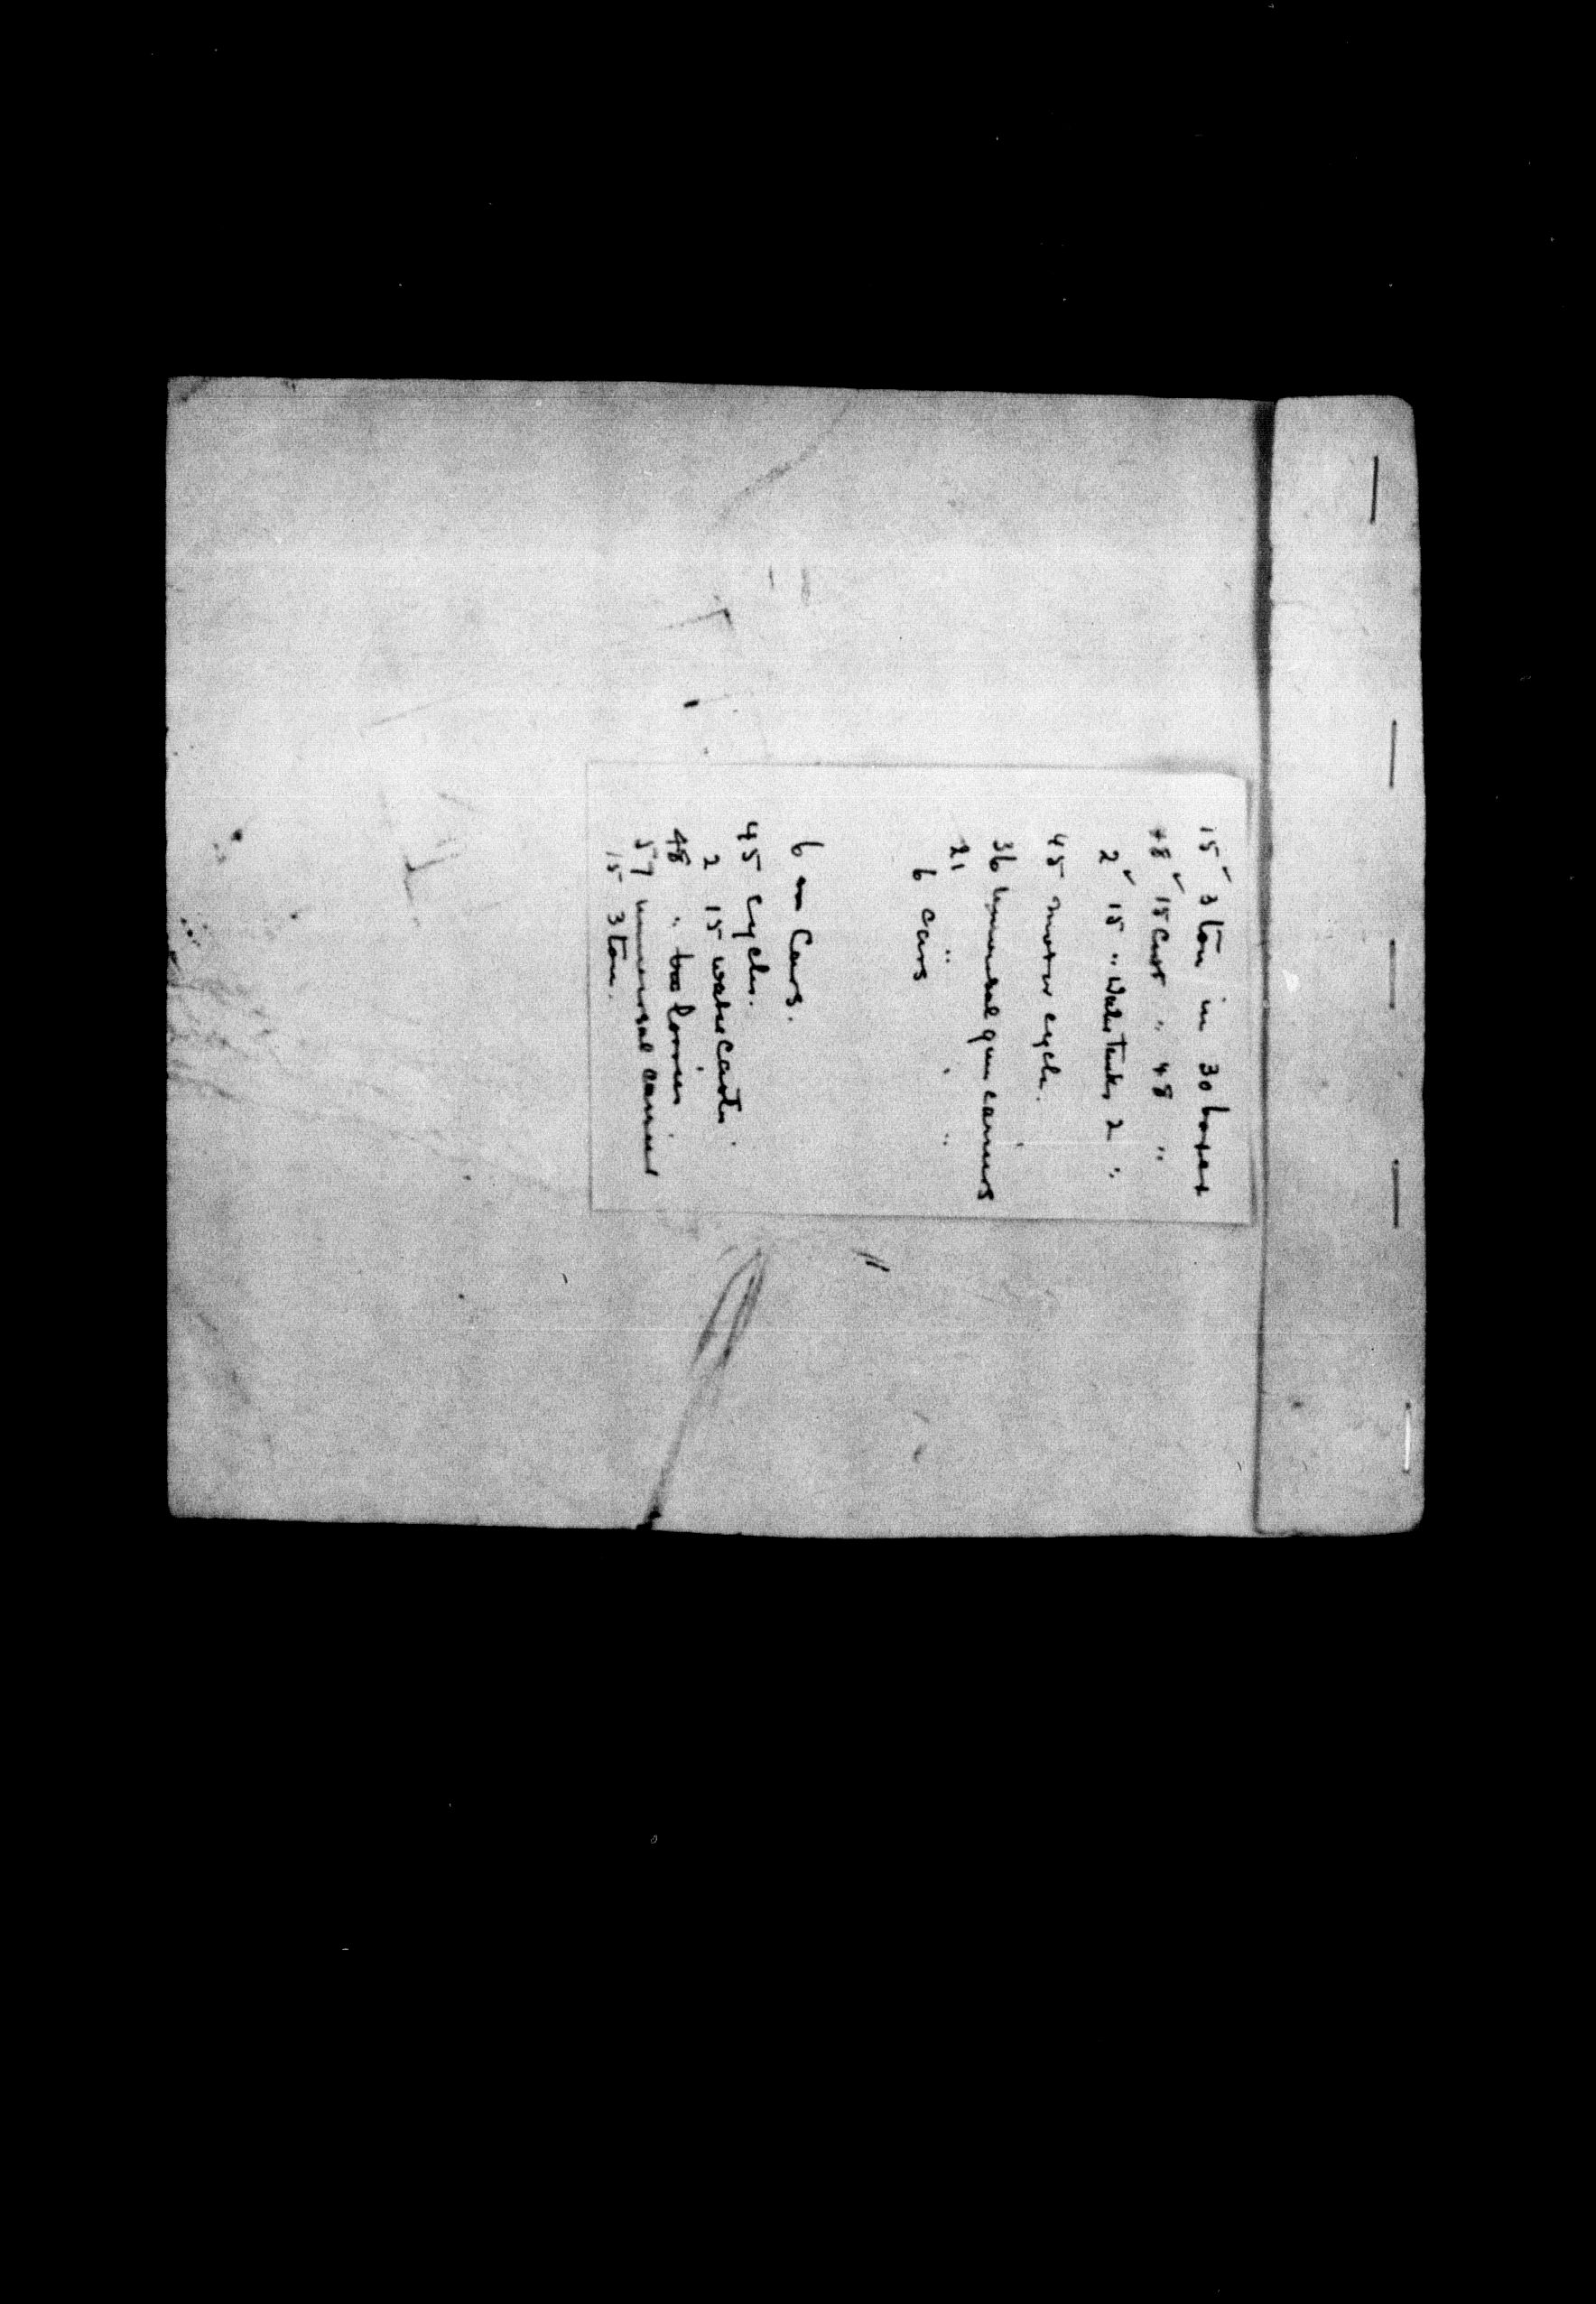 15 ✓ 3 ton in 30 boxes
48 ✓ 15 cwt " 48 "
2 ✓ 15 " Water Tanks 2 "
45 motor cycle.
36 universal gun carriers
21 " " "
6 cars
6 Cars.
45 cycles.
2 15 water carts.
48 " lorries
57 universal carriers
15 3 ton.